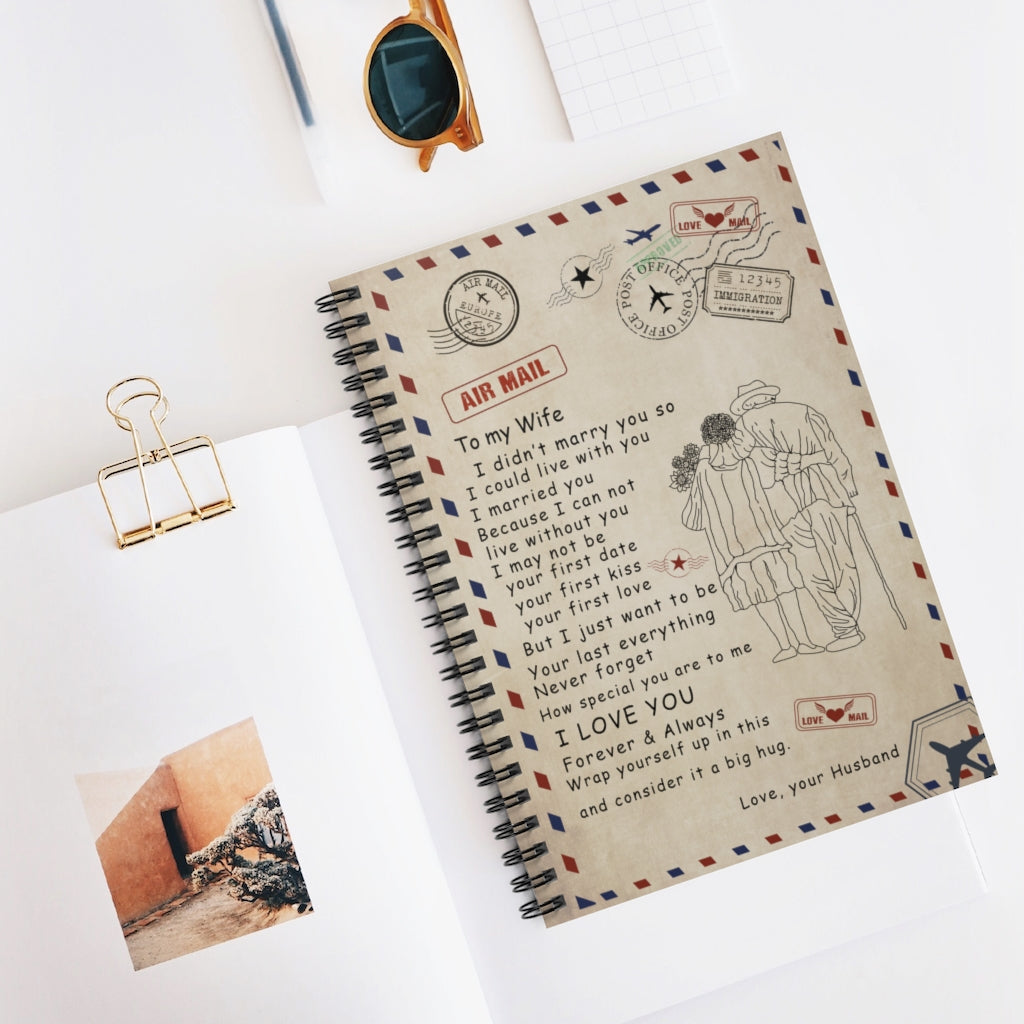 LOVE MAIL
APPROVED
AIR MAIL
EUROPE
12345
POST OFFICE POST OFFICE
12345
IMMIGRATION
AIR MAIL
To my Wife
I didn't marry you so
I could live with you
I married you
Because I can not
live without you
I may not be
your first date
your first kiss
your first love
But I just want to be
Your last everything
Never forget
How special you are to me
I LOVE YOU
Forever & Always
Wrap yourself up in this
and consider it a big hug.
LOVE MAIL
Love, your Husband